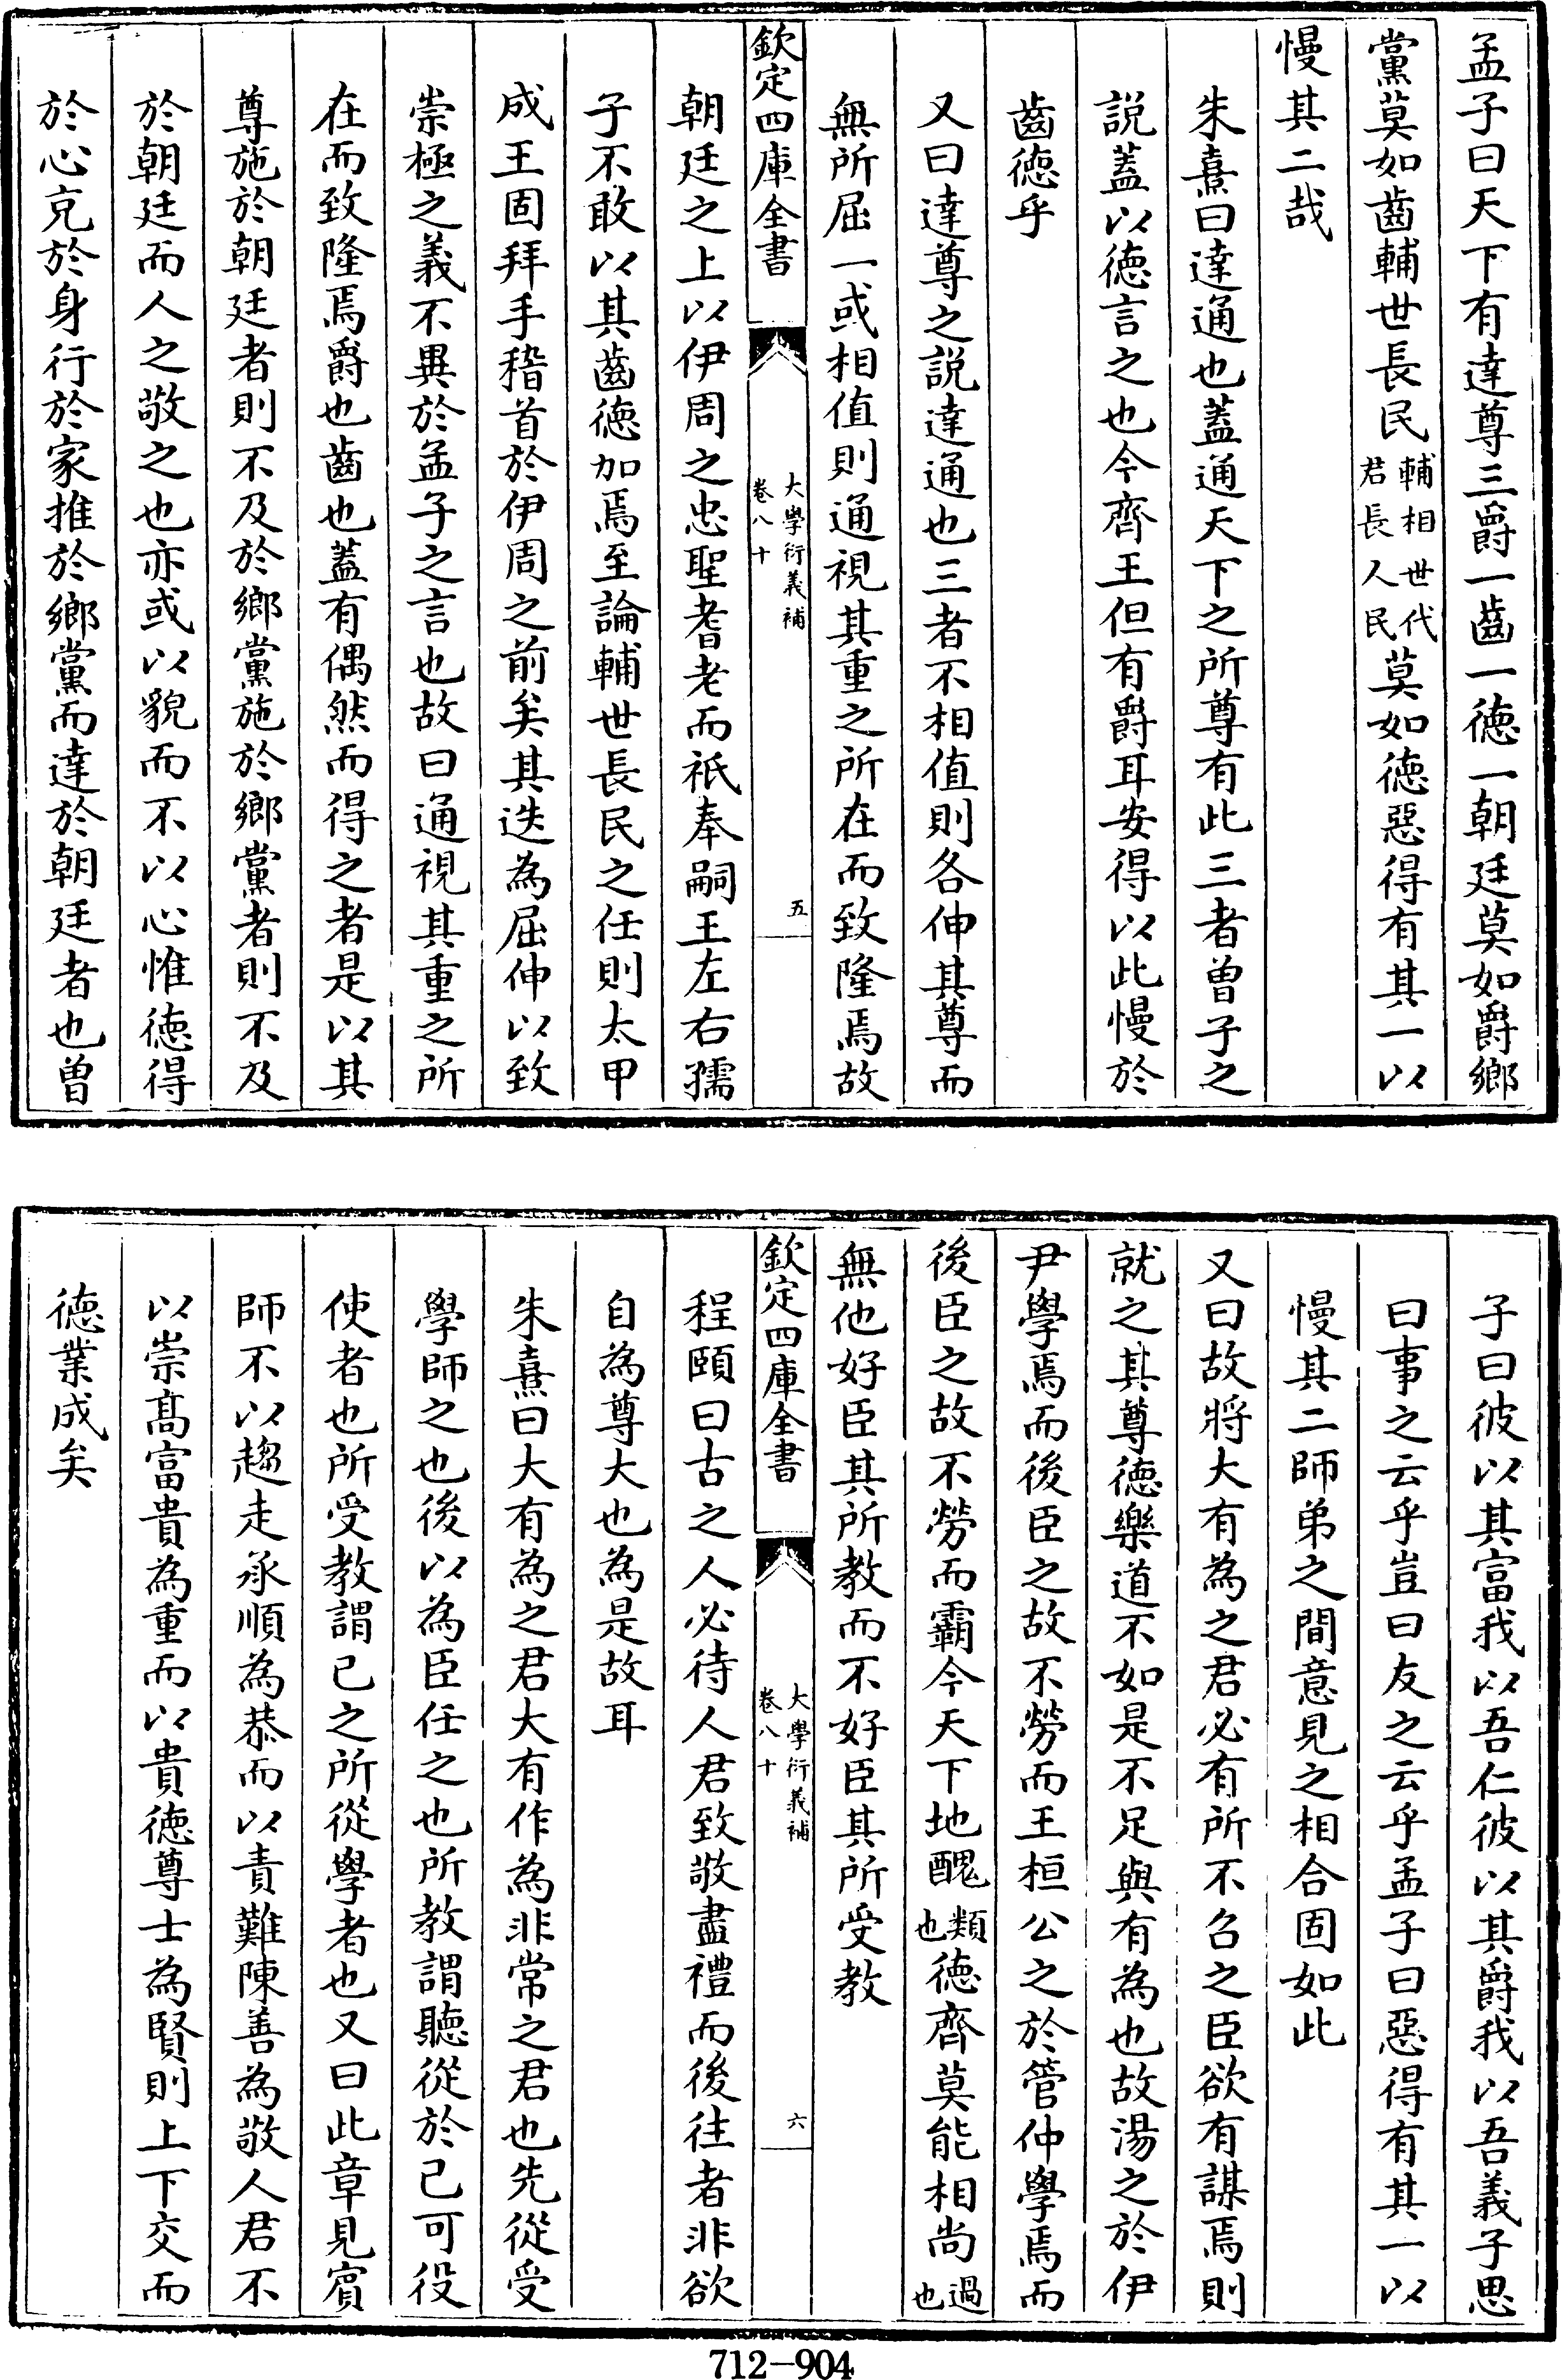 孟子曰天下有達尊三爵一齒一徳一朝廷莫如爵鄉
黨莫如齒輔世長民輔相世代君長人民莫如徳惡得有其一以
慢其二哉
朱熹曰達通也蓋通天下之所尊有此三者曾子之
說蓋以徳言之也今齊王但有爵耳安得以此慢於
齒徳乎
又曰達尊之說達通也三者不相值則各伸其尊而
無所屈一或相值則通視其重之所在而致隆焉故
欽定四庫全書
大學衍義補
卷八十
五
朝廷之上以伊周之忠聖耆老而祇奉嗣王左右孺
子不敢以其齒徳加焉至論輔世長民之任則太甲
成王固拜手稽首於伊周之前矣其迭為屈伸以致
崇極之義不異於孟子之言也故曰通視其重之所
在而致隆焉爵也齒也蓋有偶然而得之者是以其
尊施於朝廷者則不及於鄉黨施於鄉黨者則不及
於朝廷而人之敬之也亦或以貌而不以心惟徳得
於心克於身行於家推於鄉黨而達於朝廷者也曾
子曰彼以其富我以吾仁彼以其爵我以吾義子思
曰事之云乎豈曰友之云乎孟子曰惡得有其一以
慢其二師弟之間意見之相合固如此
又曰故將大有為之君必有所不召之臣欲有謀焉則
就之其尊徳樂道不如是不足與有為也故湯之於伊
尹學焉而後臣之故不勞而王桓公之於管仲學焉而
後臣之故不勞而霸今天下地醜類也徳齊莫能相尚過也
無他好臣其所教而不好臣其所受教
欽定四庫全書
大學衍義補
卷八十
六
程頤曰古之人必待人君致敬盡禮而後往者非欲
自為尊大也為是故耳
朱熹曰大有為之君大有作為非常之君也先從受
學師之也後以為臣任之也所教謂聽從於己可役
使者也所受教謂己之所從學者也又曰此章見賓
師不以趨走承順為恭而以責難陳善為敬人君不
以崇髙富貴為重而以貴徳尊士為賢則上下交而
徳業成矣
712-904